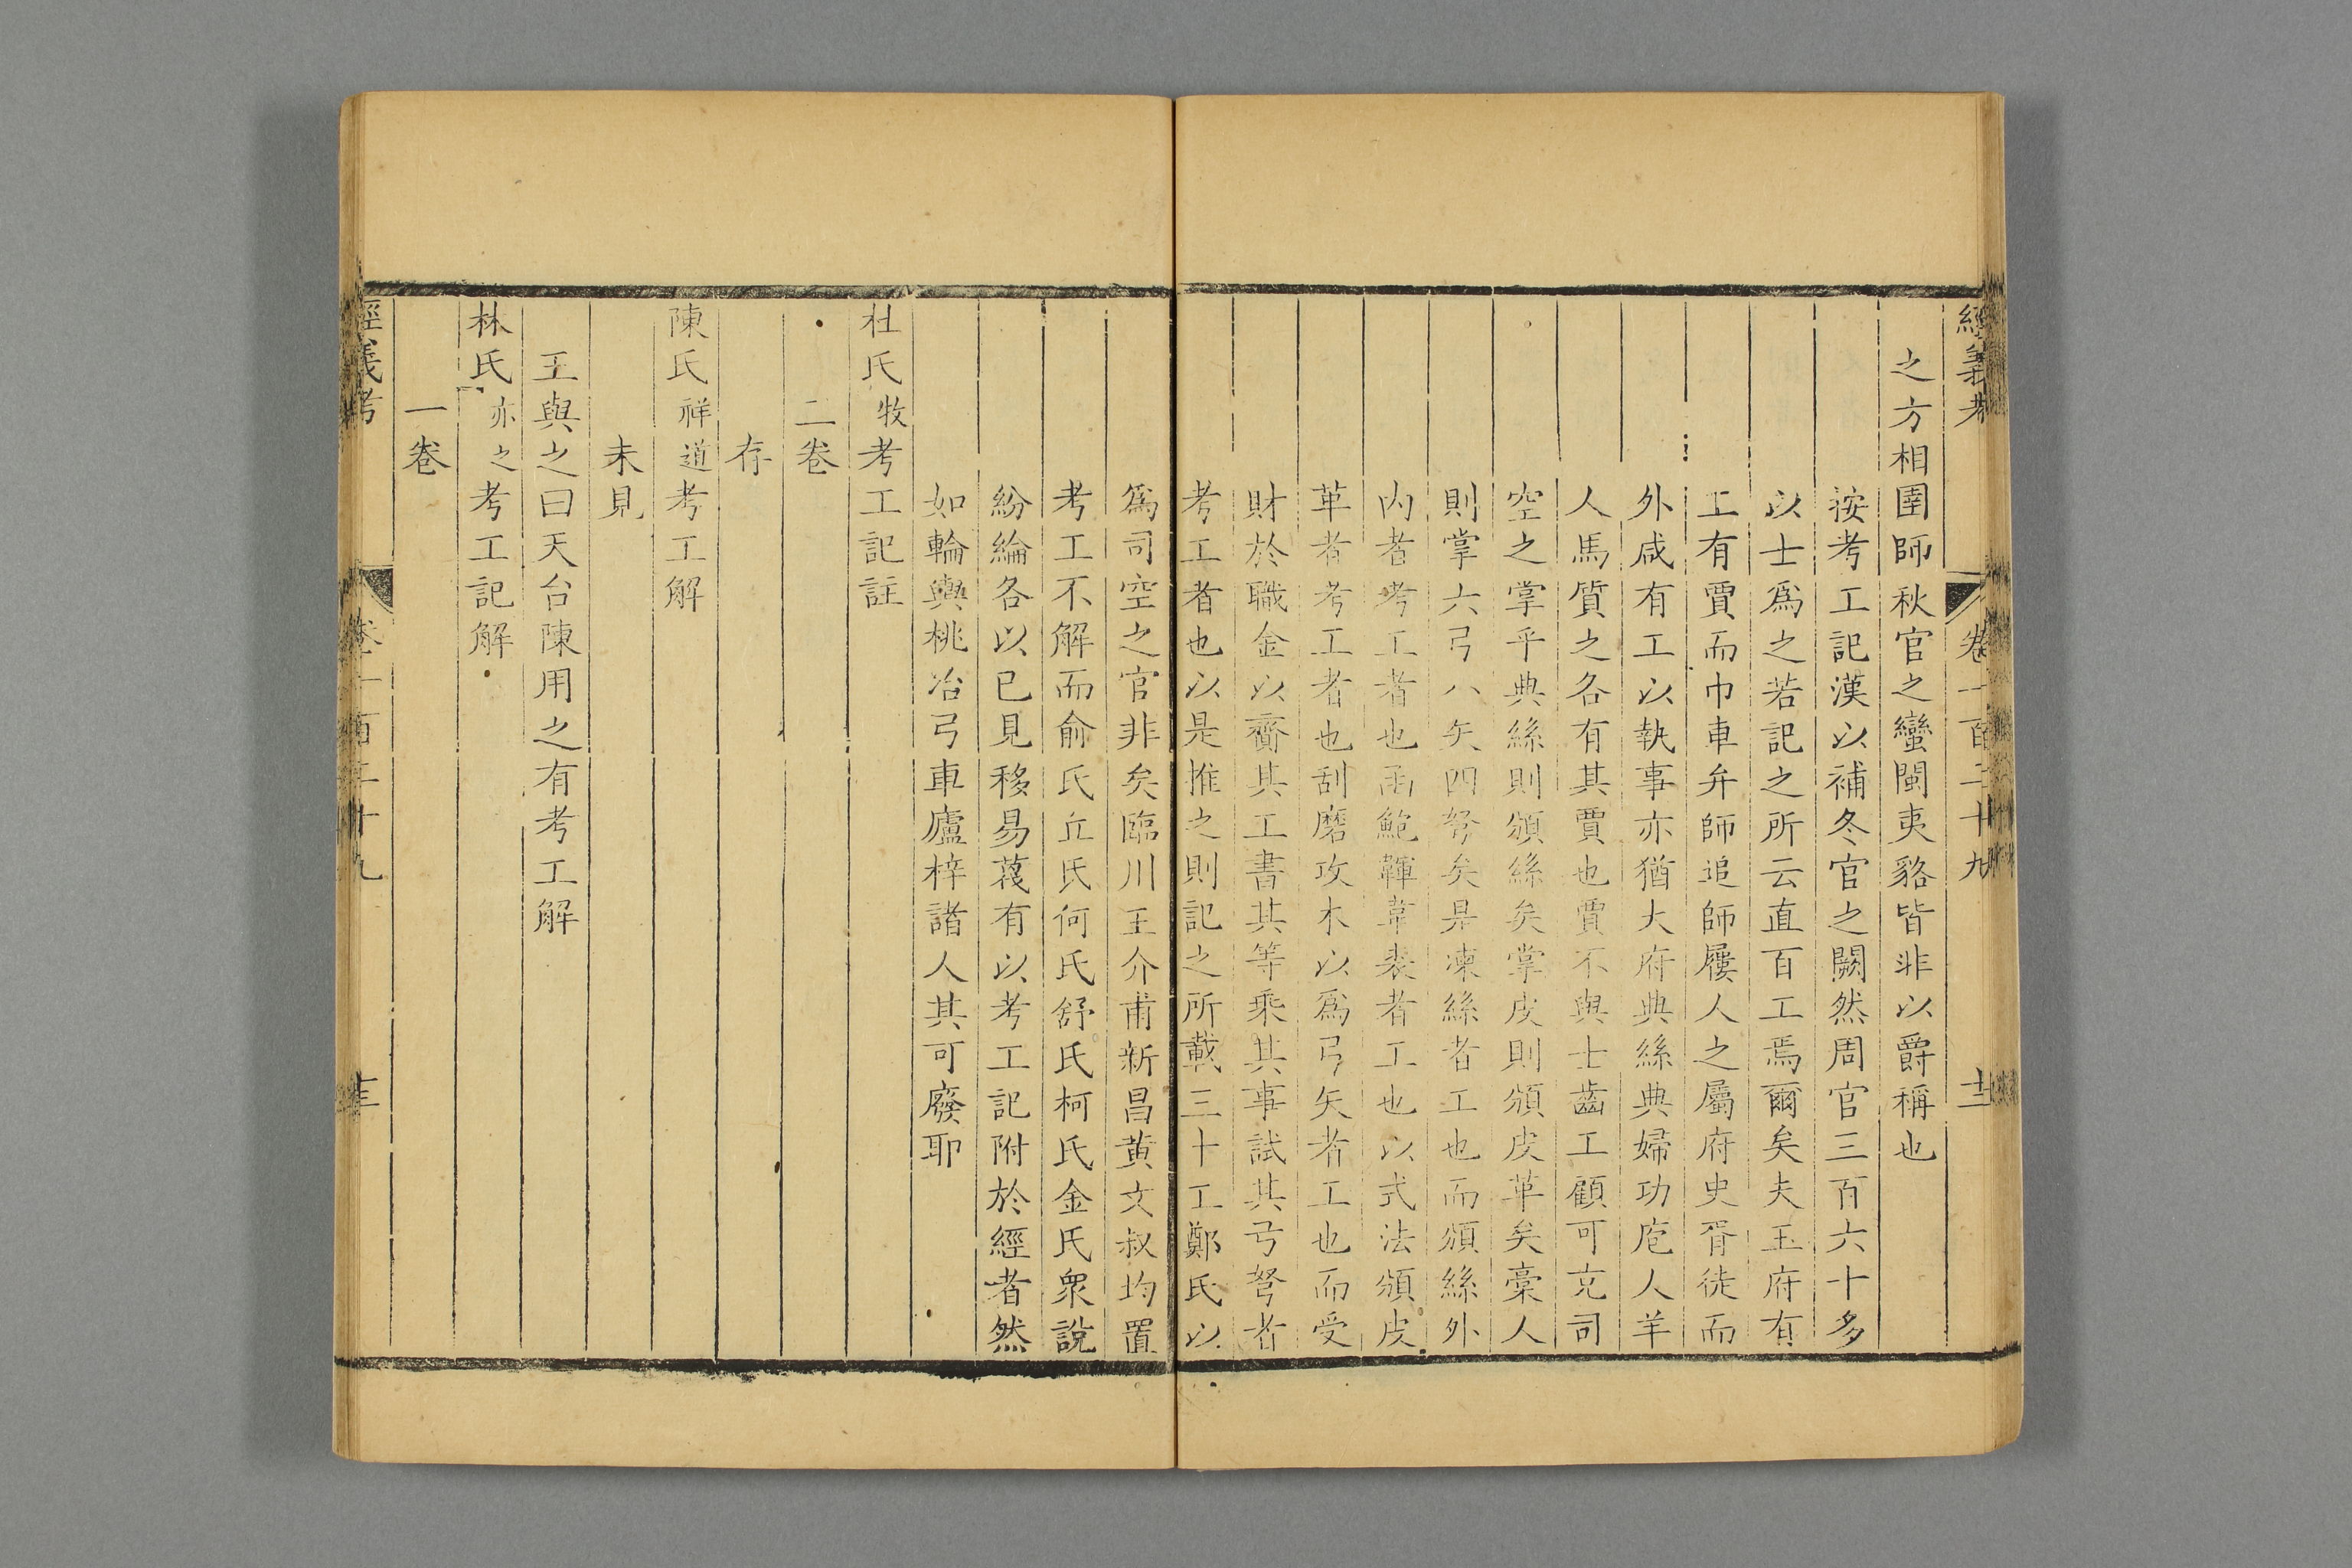 經義考 卷一百二十九 十二
之方相圉師秋官之蠻閩夷貉皆非以爵稱也
按考工記漢以補冬官之闕然周官三百六十多
以士爲之若記之所云直百工焉爾矣夫玉府有
工有賈而巾車弁師追師屨人之屬府史胥徒而
外咸有工以執事亦猶大府典絲典婦功庖人羊
人馬質之各有其賈也賈不與士齒工顧可克司
空之掌乎典絲則頒絲矣掌皮則頒皮革矣稾人
則掌六弓八矢四弩矣是湅絲者工也而頒絲外
內者考工者也函鮑韗韋裘者工也以式法頒皮
革者考工者也刮磨攻木以爲弓矢者工也而受
財於職金以齎其工書其等乘其事試其弓弩者
考工者也以是推之則記之所載三十工鄭氏以
爲司空之官非矣臨川王介甫新昌黄文叔均置
考工不解而俞氏丘氏何氏舒氏柯氏金氏衆說
紛綸各以已見移易蔑有以考工記附於經者然
如輪輿桃冶弓車廬梓諸人其可廢耶
杜氏牧考工記註
二卷
存
陳氏祥道考工解
未見
王與之曰天台陳用之有考工解
林氏亦之考工記解
一卷
經義考 卷一百二十九